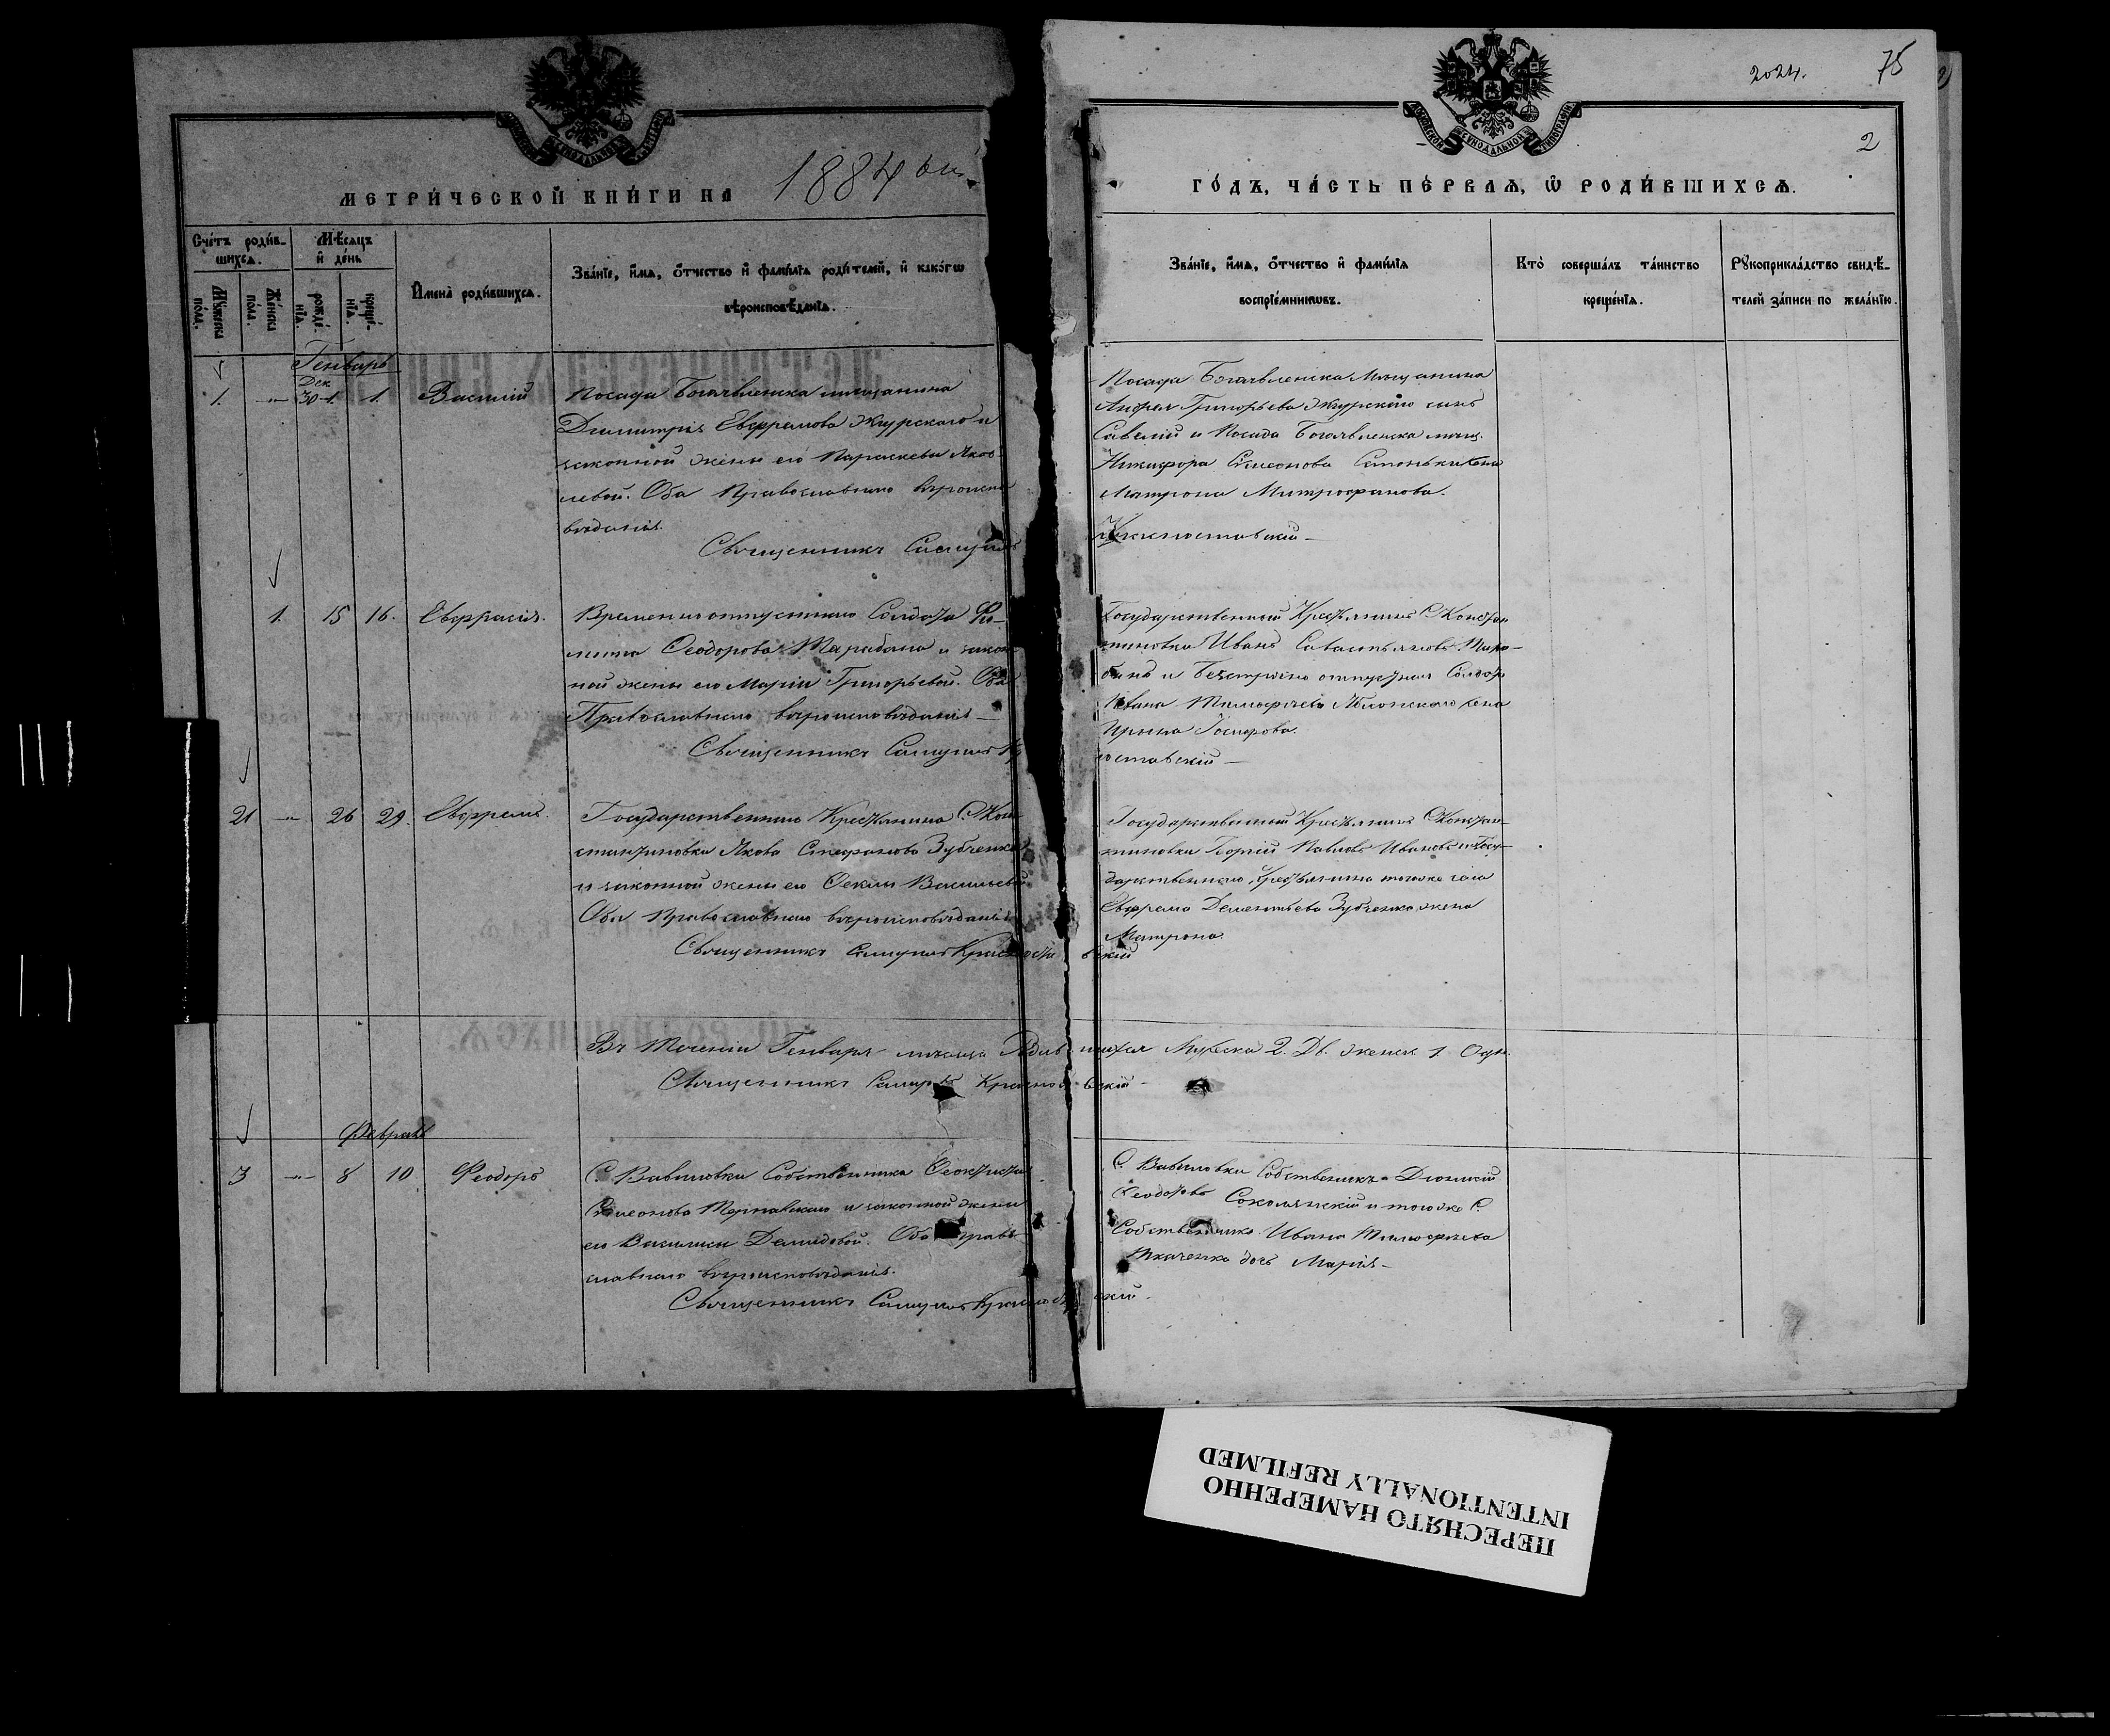 2024.
75
2
МЕТРИ́ЧЕСКОЙ КНИ́ГИ НА 1884 ый
ГО́ДЪ, ЧА́СТЬ ПЕ́РВАѦ, Ѡ РОДИ́ВШИХСѦ.
Сче́тъ роди́в-
шихсѧ.
Мѣ́сѧцъ
и҆ де́нь
Мꙋ́жеска по́ла.
Же́нска по́ла.
рожде́нїѧ.
креще́нїѧ.
И҆мена̀ роди́вшихсѧ.
Зва́нїе, и҆́мѧ, ѻ҆́тчество и҆ фамі́лїѧ роди́телей, и҆ како́гѡ
вѣроисповѣ́данїѧ.
Зва́нїе, и҆́мѧ, ѻ҆́тчество и҆ фамі́лїѧ
воспрїе́мникѡвъ.
Кто̀ соверша́лъ та́инство
креще́нїѧ.
Рꙋкоприкла́дство свидѣ́-
телей за́писи по жела́нїю.
Генварь
Дек
1. -"- 30-1. 1. Василій
Посада Богоявленска мѣщанина
Димитрія Евфремова Жгурскаго и
законной жены его Параскевы Яков
левой. Оба Православнаго вѣроиспо
вѣданія.
Священникъ Самуилъ
Посада Богоявленска Мѣщанина
Григорьева Жгурскаго сынъ
Савелій и Посада Богоявленска мѣщ.
Никифора Симеонова жена
Матрона Митрофанова.
1. 15 16. Евфрасія.
Временноотпускнаго Солдата Фи-
липпа Ѳеодорова Тарабана и закон
ной жены его Маріи Григорьевой. Оба
Православнаго вѣроисповѣданія —
Священникъ Самуилъ Кр
Государственный Крестьянинъ С. Констан
тиновки Иванъ Тара-
банъ и Безсрочно отпускнаго Солдата
Ивана Тимофѣева жена
Ирина
ставскій —
21 -"- 26 29. Евфремъ.
Государственнаго Крестьянина С. Кон-
стантиновки Якова Стефанова Зубченка
и законной жены его Ѳеклы Васильевой
Оба Православнаго вѣроисповѣданія
Священникъ Самуилъ
вскій
Государственный Крестьянинъ С. Констан-
тиновки Георгій Павловъ Ивановъ и Госу-
дарственнаго Крестьянина тогоже села
Евфрема Дементьева Зубченка жена
Матрона.
Въ теченіи Генваря мѣсяца Родив шихся Мужеска 2. Дв. женск. 1 Одн.
Священникъ
Февраль
3 -"- 8 10 Ѳеодоръ
С. Вавиловки Собственника Ѳеоктиста
Симеонова и законной жены
его Василисы Демидовой. Оба Право
славнаго вѣроисповѣданія.
Священникъ Самуилъ
С. Вавиловки Собственникъ Діонисій
Ѳеодоровъ и тогоже С.
Собственника Ивана Тимофѣева
Ткаченка дочь Марія —
ПЕРЕСНЯТО НАМЕРЕННО
INTENTIONALLY REFILMED